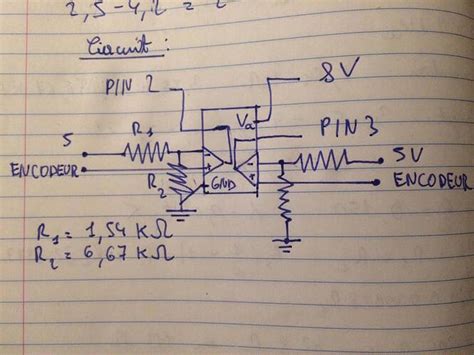 2,5 - 4,2 = 2
Circuit :
PIN 2
8V
Va
PIN 3
5
R1
5V
ENCODEUR
R2
GND
ENCODEUR
R1 = 1,54 KΩ
R2 = 6,67 KΩ